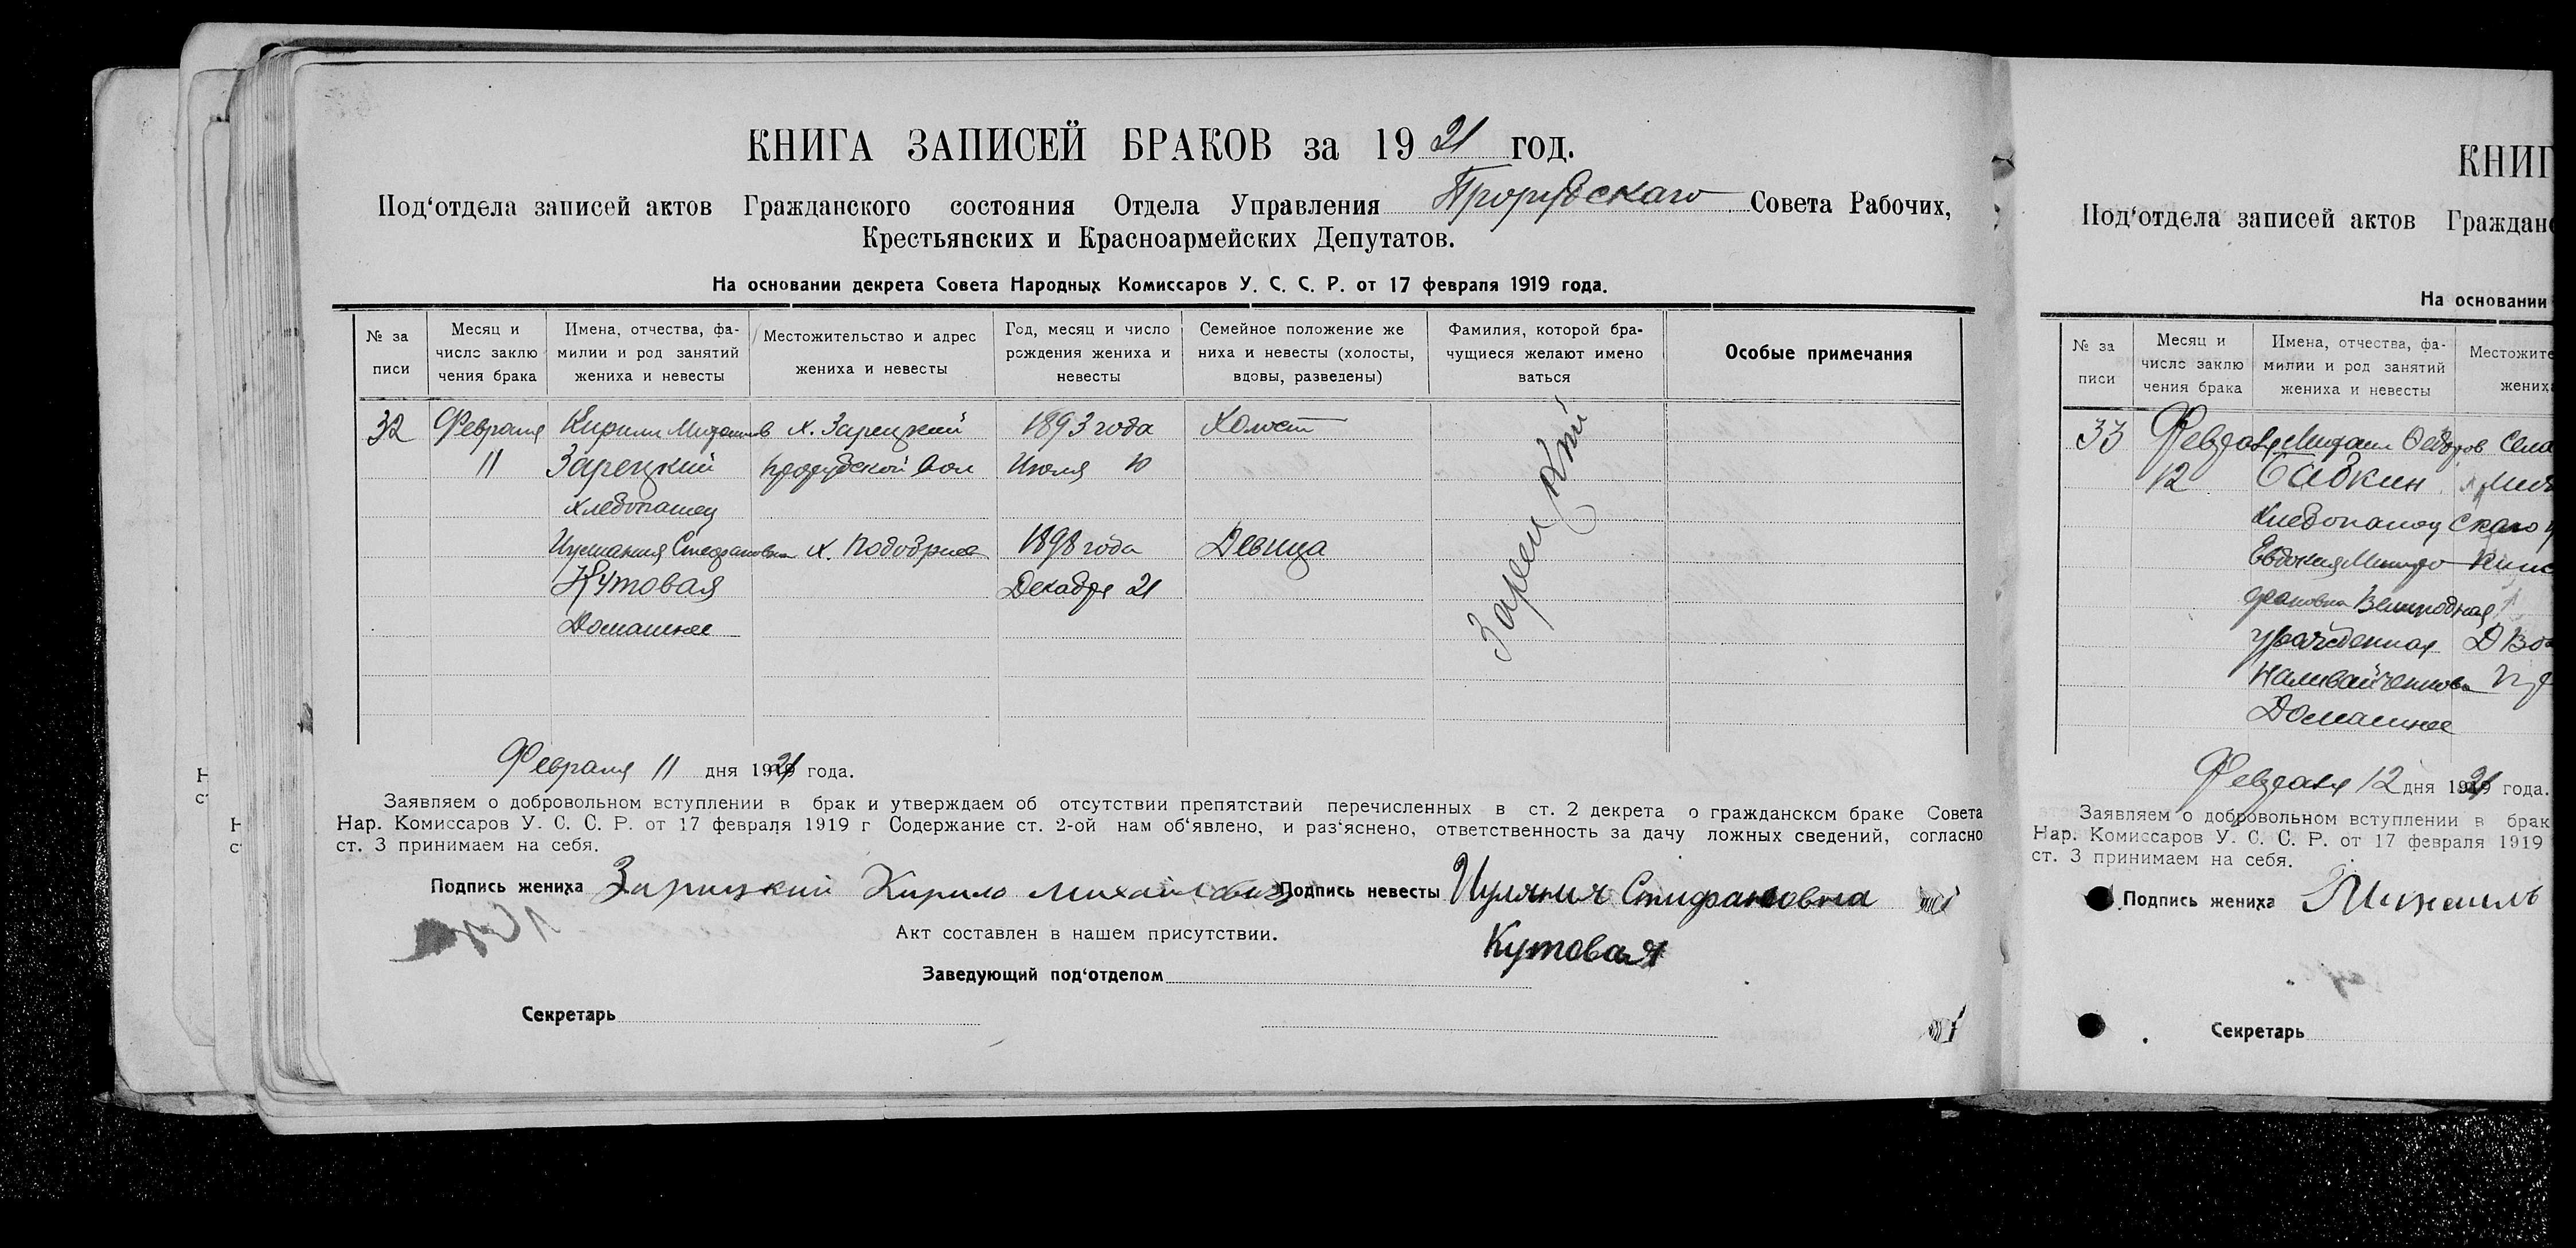 КНИГА ЗАПИСЕЙ БРАКОВ за 1921 год.
Под‘отдела записей актов Гражданского состояния Отдела Управления Прорубскаго Совета Рабочих,
Крестьянских и Красноармейских Депутатов.
На основании декрета Совета Народных Комиссаров У. С. С. Р. от 17 февраля 1919 года.
№ за писи
Месяц и число заклю чения брака
Имена, отчества, фа- милии и род занятий жениха и невесты
Местожительство и адрес жениха и невесты
Год, месяц и число рождения жениха и невесты
Семейное положение же ниха и невесты (холосты, вдовы, разведены)
Фамилия, которой бра- чущиеся желают имено ваться
Особые примечания
32 Февраля Кирилл Михаилов х. Зарецкий 1893 года Холост
11 Зарецкий Прорубской вол Июля 10
Хлебопашец
Стефановна х. 1898 года Девица
Кутовая Декабря 21
Домашнее
Зарецкий
Февраля 11 дня 1921 года.
Заявляем о добровольном вступлении в брак и утверждаем об отсутствии препятствий перечисленных в ст. 2 декрета о гражданском браке Совета
Нар. Комиссаров У. С. С. Р. от 17 февраля 1919 г Содержание ст. 2-ой нам об‘явлено, и раз‘яснено, ответственность за дачу ложных сведений, согласно
ст. 3 принимаем на себя.
Подпись жениха Зарицкий Кирило Михайлович Подпись невесты Иуляния Стифановна
Кутовая
Акт составлен в нашем присутствии.
Заведующий под‘отделом
Секретарь
КНИГ
Под‘отдела записей актов Граждан
На основании
№ за писи
Месяц и число заклю чения брака
Имена, отчества, фа- милии и род занятий жениха и невесты
Местожите жениха
33 Февраля Михаил Федоров Села
12 Бабкин
Хлебопашец
Евдокия
урожденная
Домашнее
Февраля 12 дня 1921 года.
Заявляем о добровольном вступлении в брак
Нар. Комиссаров У. С. С. Р. от 17 февраля 1919
ст. 3 принимаем на себя.
Подпись жениха Михаиль
Секретарь